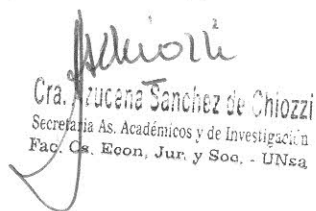 Cra. Azucena Sanchez de Chiozzi
Secretaria As. Académicos y de Investigación
Fac. Cs. Econ, Jur. y Soc. - UNsa